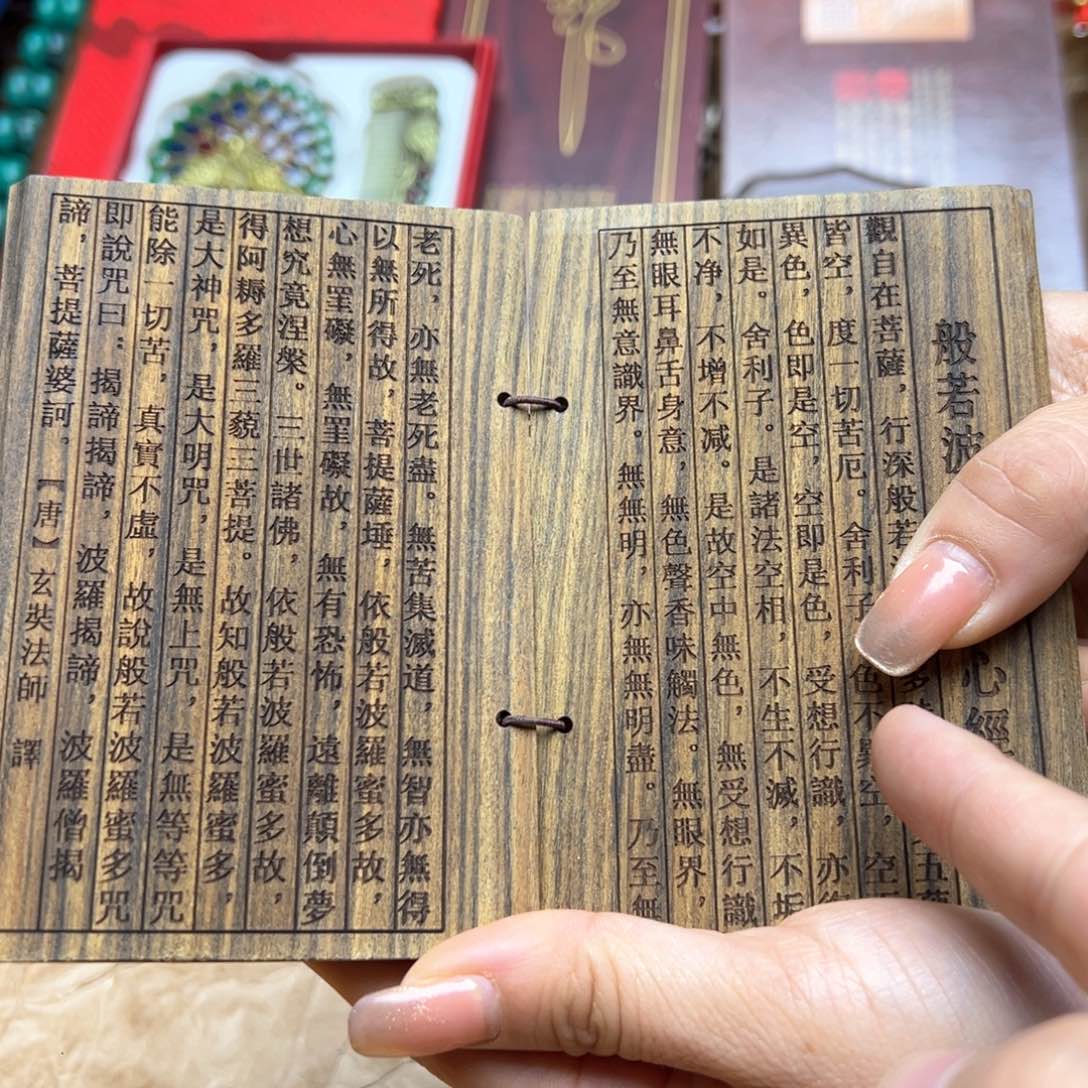 般若波心經
觀自在菩薩，行深般若多五蘊
皆空，度一切苦厄。舍利子色不異空，空
異色，色即是空，空即是色，受想行識，亦復
如是。舍利子。是諸法空相，不生不滅，不垢
不净，不增不减。是故空中無色，無受想行識
無眼耳鼻舌身意，無色聲香味觸法。無眼界，
乃至無意識界。無無明，亦無無明盡。乃至無
老死，亦無老死盡。無苦集滅道，無智亦無得
以無所得故，菩提薩埵，依般若波羅蜜多故，
心無罣礙，無罣礙故，無有恐怖，遠離顛倒夢
想究竟涅槃。三世諸佛，依般若波羅蜜多故，
得阿耨多羅三藐三菩提。故知般若波羅蜜多，
是大神咒，是大明咒，是無上咒，是無等等咒
能除一切苦，真實不虛，故說般若波羅蜜多咒
即說咒曰：揭諦揭諦，波羅揭諦，波羅僧揭
諦，菩提薩婆訶。
【唐】玄奘法師 譯